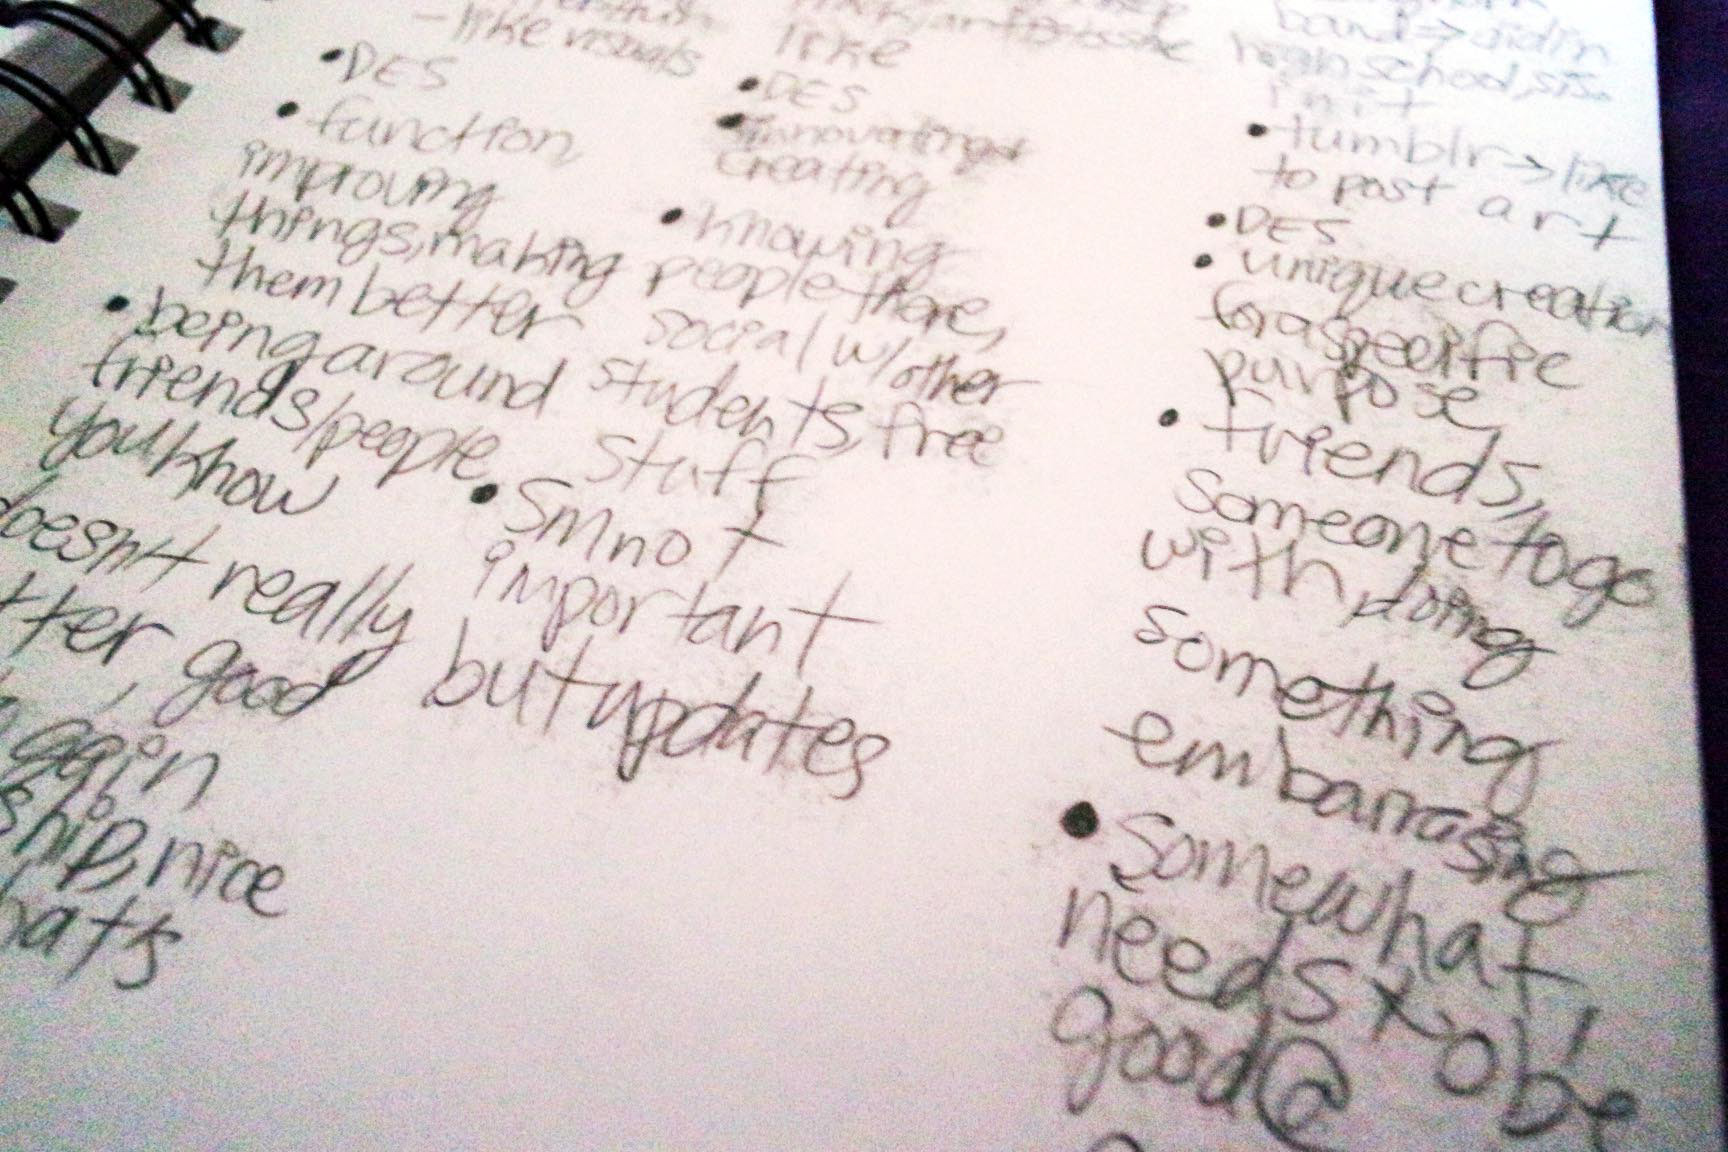 - like visuals
• DES
• function
improving
things, making
them better
• being around
friends/people
you know
doesn't really
good
again
ship, nice
hats
like
• DES
• innovating &
creating
• knowing
people there,
social w/other
students, free
stuff
• SM not
important
but updates
band → did in
high school, sis
in it
• tumblr → like
to post art
• DES
• unique creation
for a specific
purpose,
• friends,
someone to go
with, doing
something
embarrasing
• Somewhat
needs to be
good @